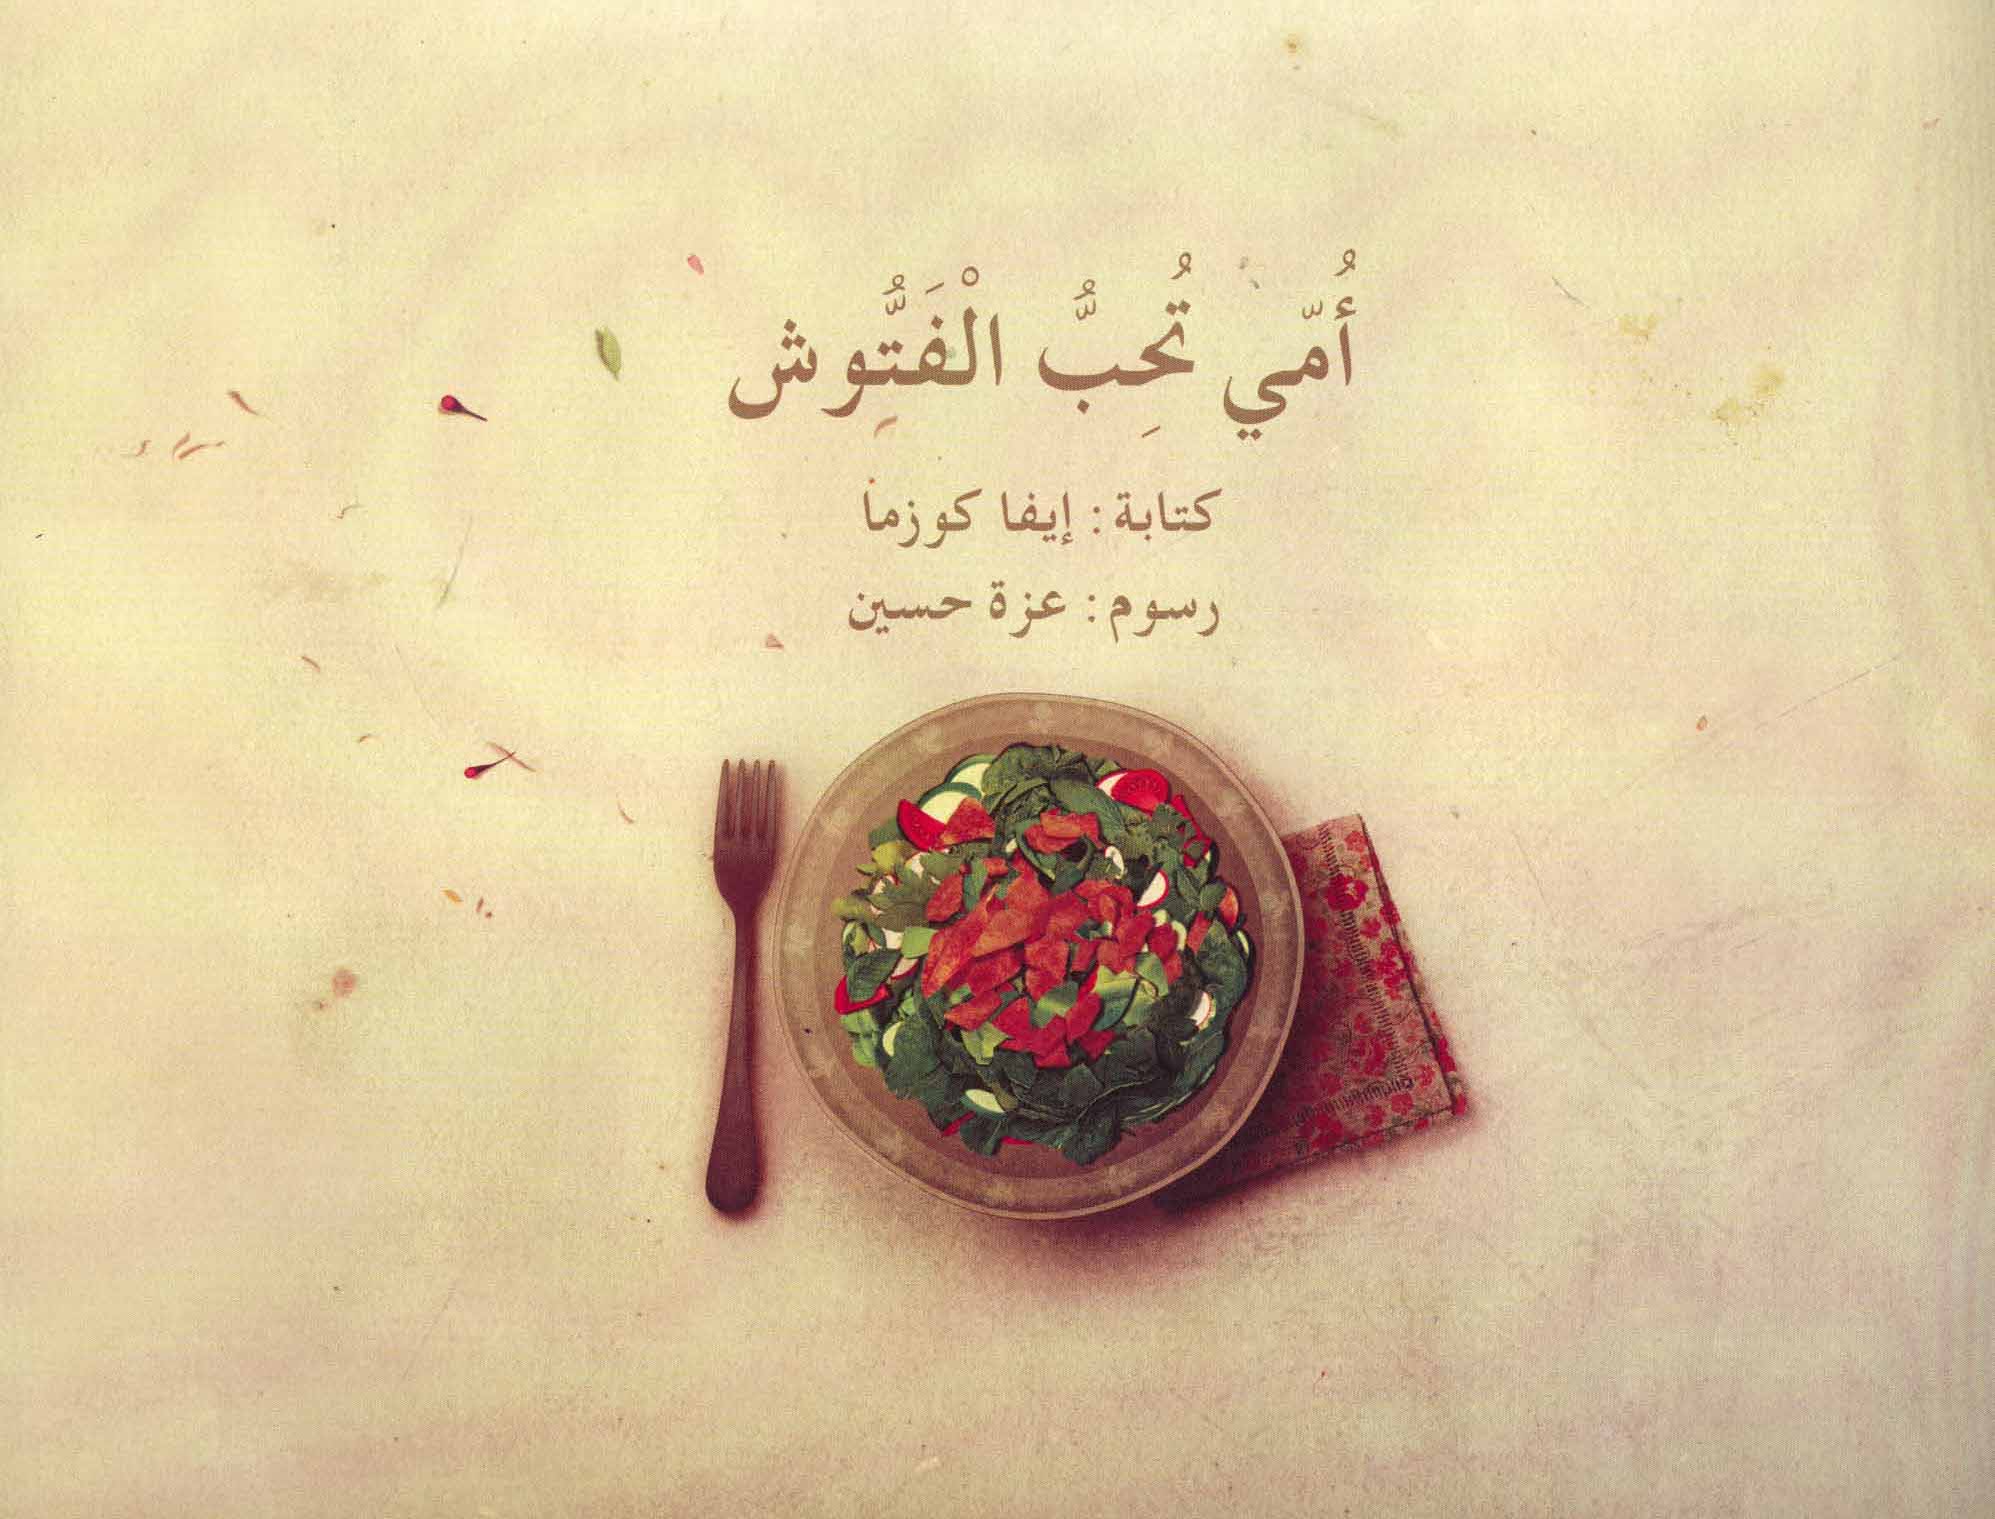 أُمّي تُحِبُّ الْفَتُّوش
كتابة: إيفا كوزما
رسوم: عزة حسين